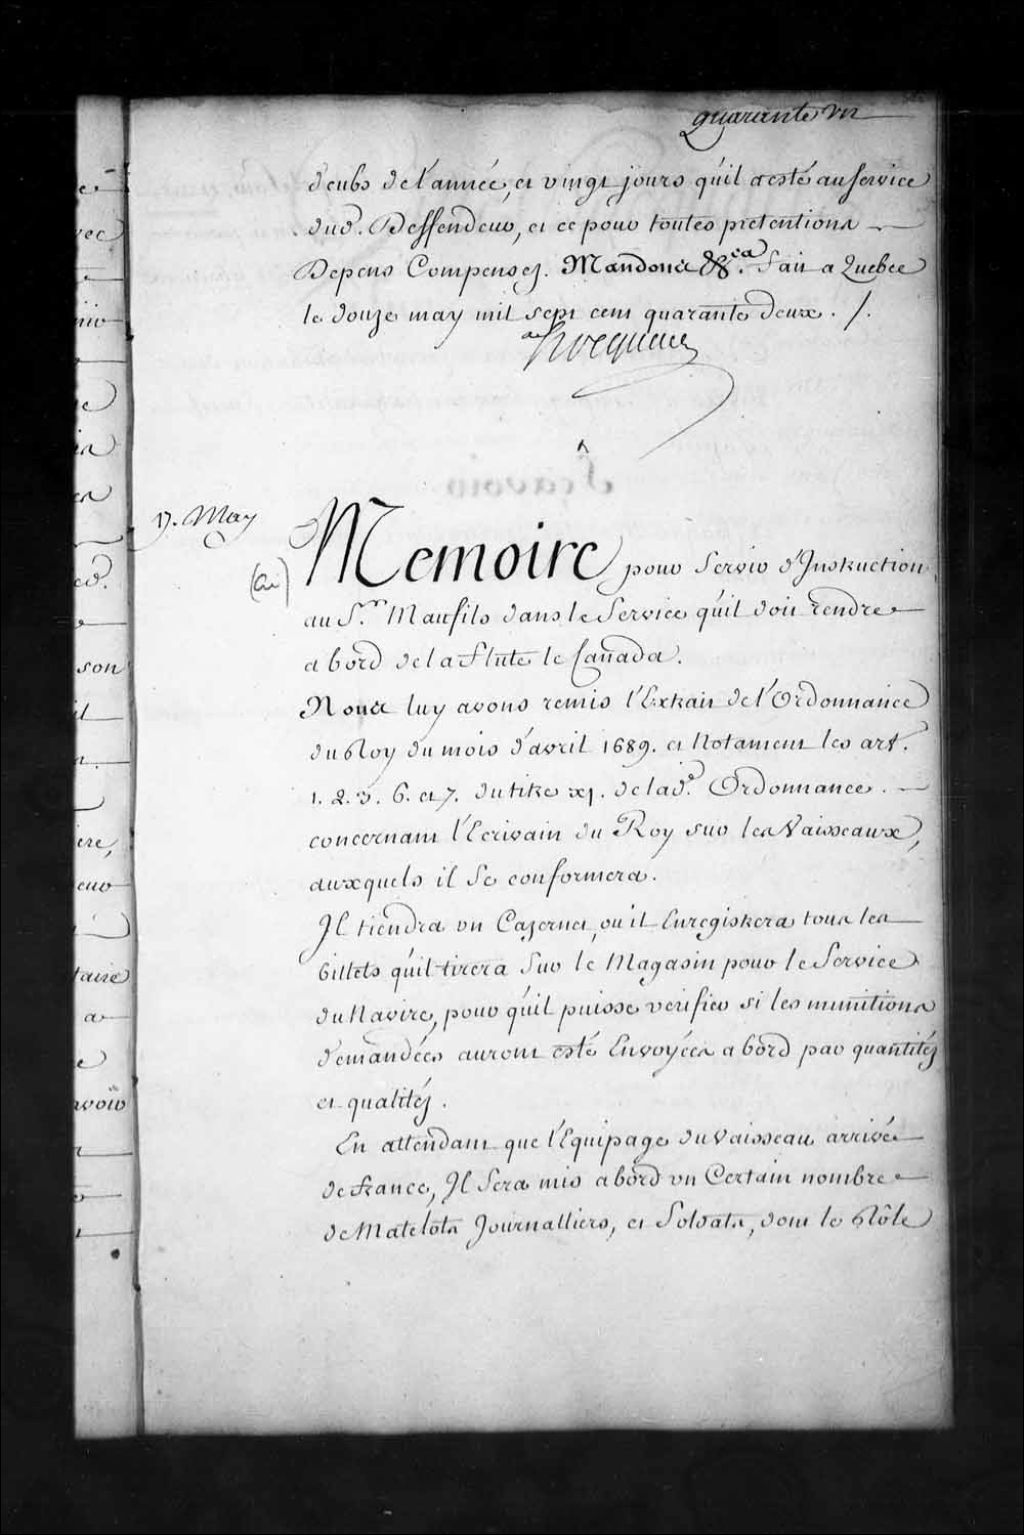 quarante un
deubs de l'année, et vingt jours qu'il a esté au service
dud. Deffendeur, et ce pour toutes pretentions
Depens Compensez. Mandons &ca. Fait a Quebec
le douze may mil sept cent quarante deux ./.
Hocquart
17. May
Memoire pour Servir d'Instruction
au S.r Manfils dans le Service qu'il doit rendre
a bord de la flute le Canada.
Nous luy avons remis l'Extrait de l'Ordonnance
du Roy du mois d'avril 1689. et Notament les art.
1. 2. 3. 6. et 7. du titre xj. de lad.e Ordonnance.
concernant l'Ecrivain du Roy sur les Vaisseaux,
auxquels il se conformera.
Il tiendra un Cazernet, ou il Enregistrera tous les
billets qu'il tirera Sur le Magasin pour le Service
du Navire, pour qu'il puisse verifier si les munitions
demandées auront esté Envoyées a bord par quantités
et qualitéz.
En attendant que l'Equipage du vaisseau arrive
de france, Il Sera mis a bord un Certain nombre
de Matelots Journalliers, et Soldats, dont le Rôle